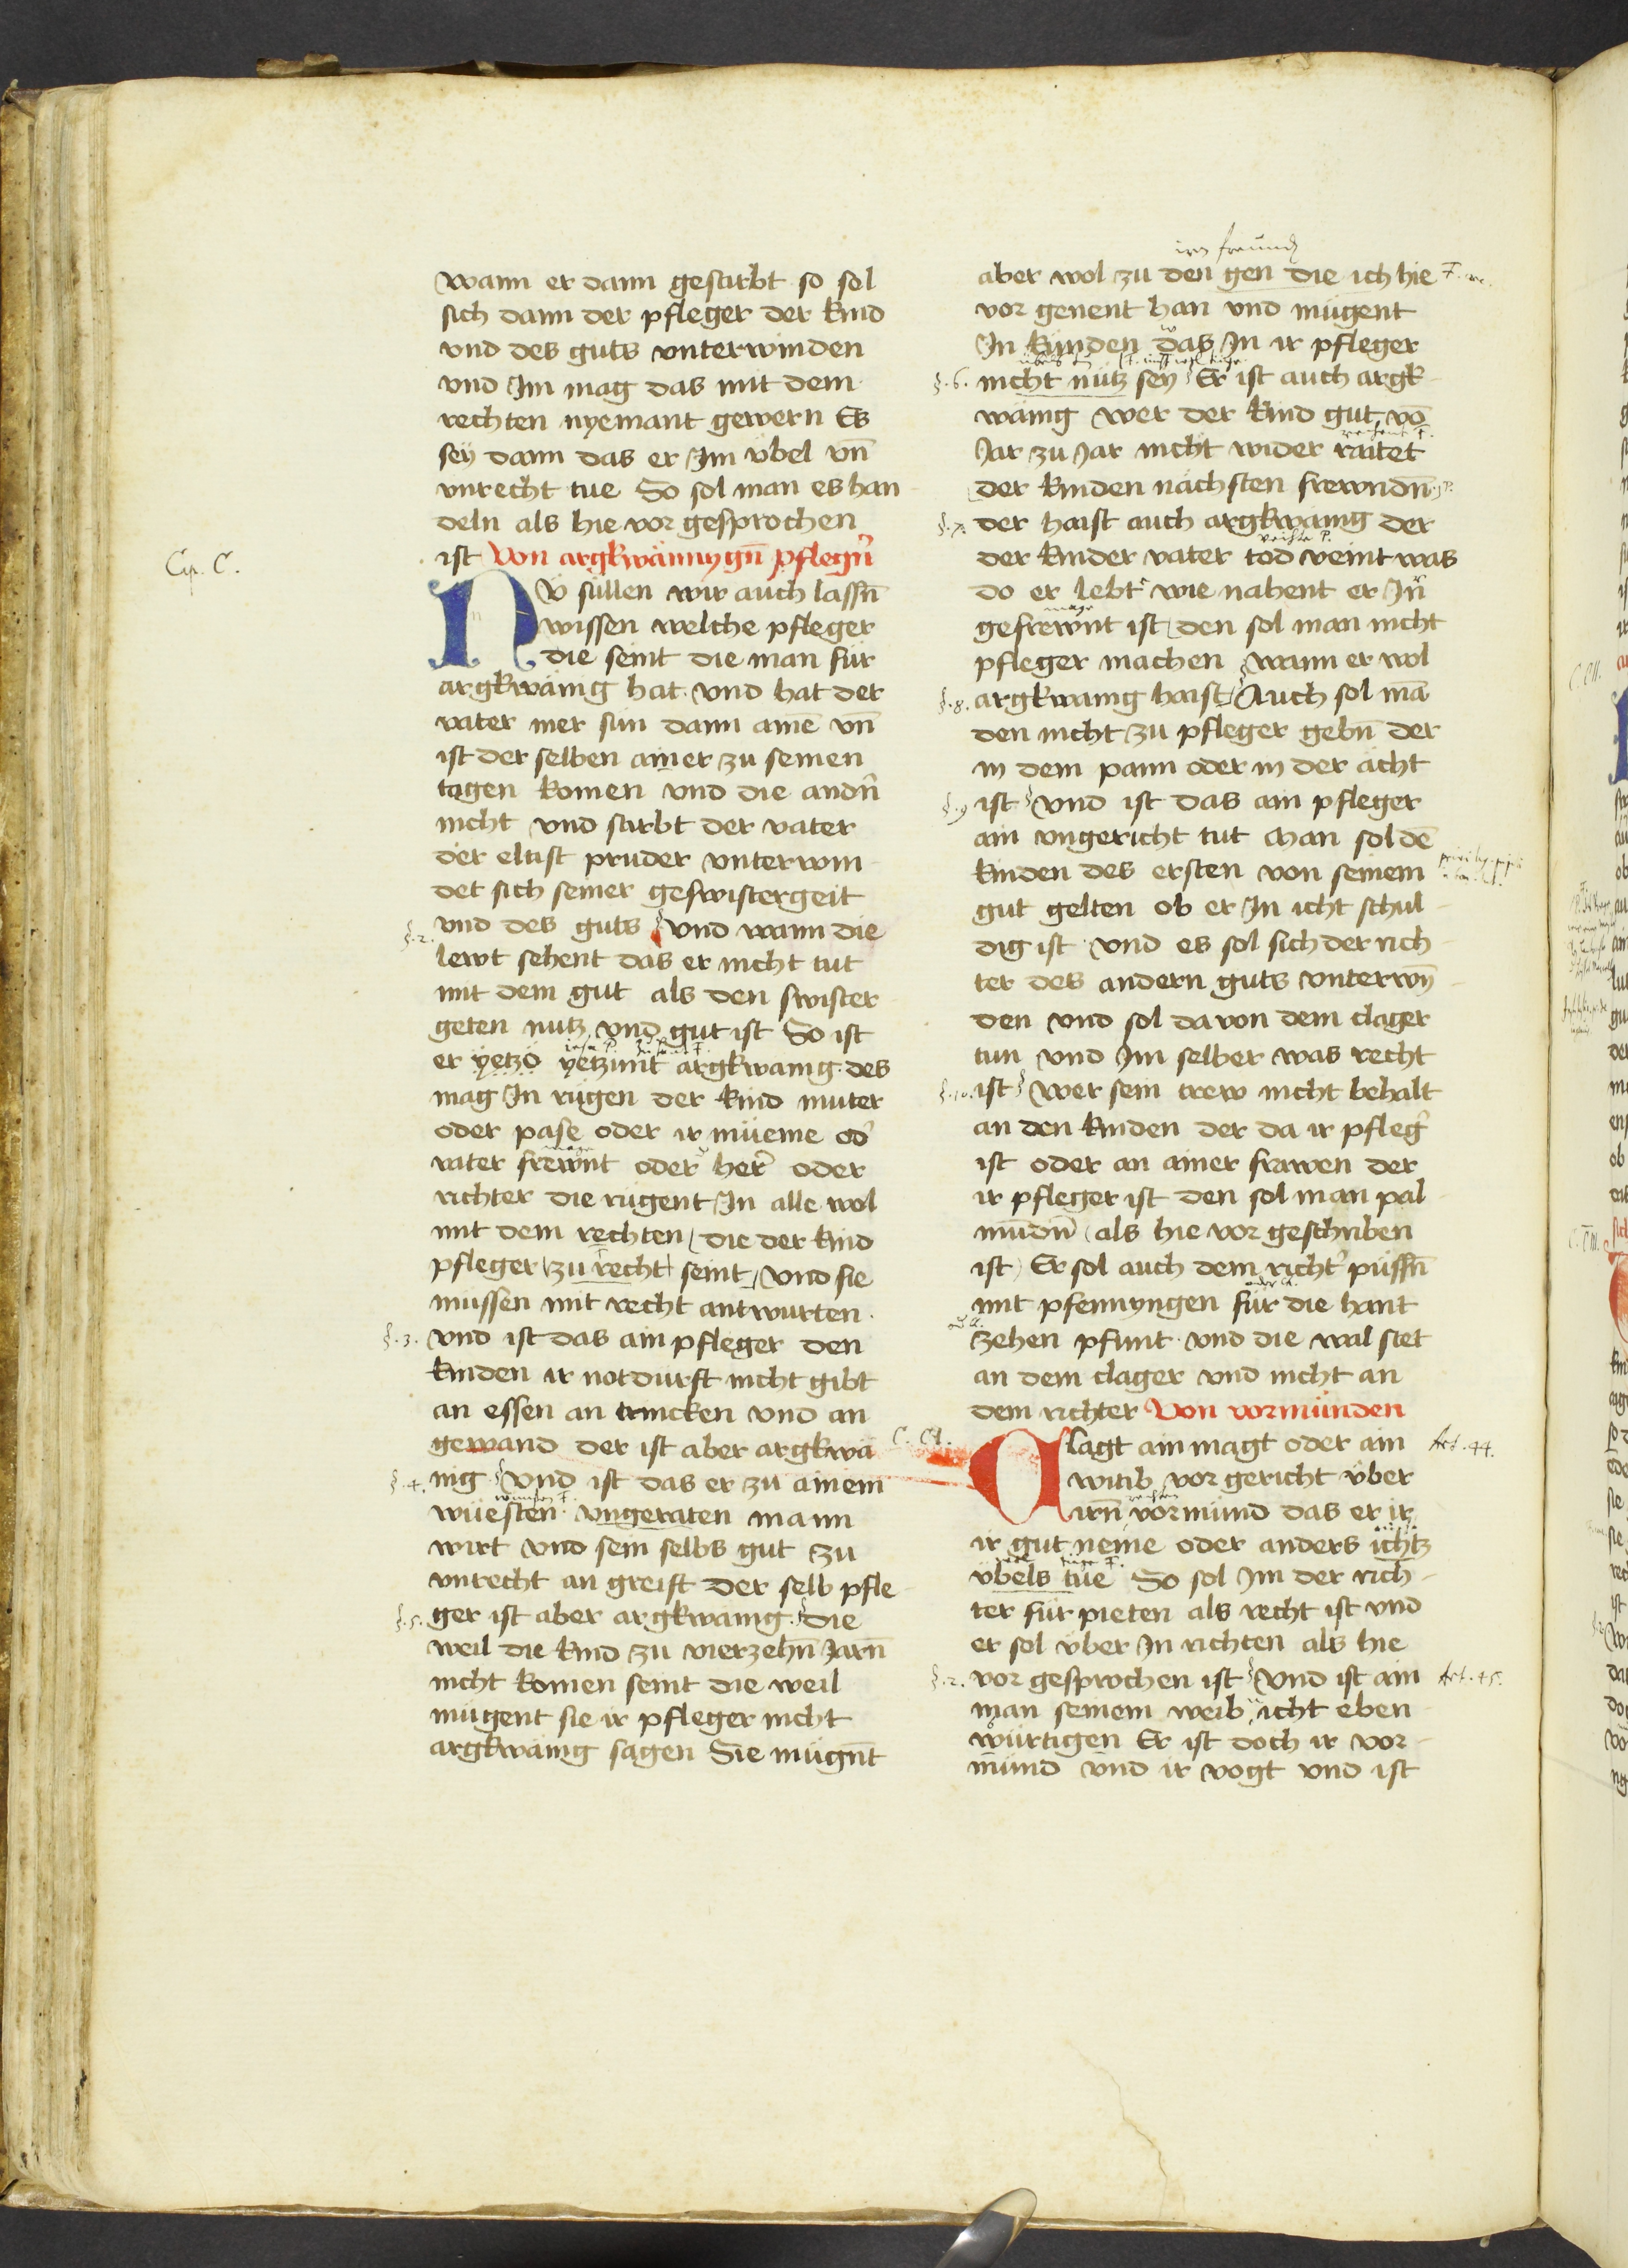 wann er dann gestirbt so sol
sich dann der pfleger der kind
vnd des guts vnterwinden
vnd Im mag das mit dem
rechten nyemant gewern Es
sey dann das er Im vbel vn̄
vnrecht tue So sol man es han
deln als hie vor gesprochen
ist Von argkwännygn̄ pflegn̄
Cap. C.
NV süllen wir auch lassn̄
wissen welche pfleger
die seint die man für
argkwänig hat. vnd hat der
vater mer sün dann ainē vn̄
ist der selben ainer zu seinen
tagen komen vnd die andn̄
nicht vnd stirbt der vater
der eltist pruder vnterwin
det sich seiner geswistergeit
§.2. vnd des guts vnd wann die
lewt sehent das er nicht tut
mit dem gut als den swister
geten nutz vnd gut ist So ist
er yetzo yetzunt argkwanig. des
mag In rügen der kind muter
oder pase oder ir müeme od'
vater frewnt oder her' oder
richter die rügent In alle wol
mit dem rechten die der kind
pfleger zu recht seint, vnd sie
müssen mit recht antwurten.
§.3. vnd ist das ain pfleger den
kinden ir notdurft nicht gibt
an essen an trincken vnd an
gewand der ist aber argkwä
§.4. nig vnd ist das er zu ainem
wüesten vngeraten mann
wirt vnd sein selbs gut zu
vnrecht an greift der selb pfle
§.5. ger ist aber argkwanig. die
weil die kind zu vierzehn̄ Jarn̄
nicht komen seint die weil
mügent sie ir pfleger nicht
argkwänig sagen Sie mügn̄t
aber wol zu den gen die ich hie
vor genent han vnd mügent
In künden das In ir pfleger
§.6. nicht nütz sey Er ist auch argk
wänig wer der kind gut vō
Jar zu Jar nicht wider raitet
der kinden nächsten frewndn̄
§.7. der haist auch argkwänig der
der kinder vater tod veint was
do er lebt wie nahent er In
gefrewnt ist den sol man nicht
pfleger machen wann er wol
§.8. argkwanig haist Auch sol mā
den nicht zu pfleger gebn̄ der
in dem pann oder in der ächt
§.9 ist vnd ist das ain pfleger
ain vngericht tut man sol dē
kinden des ersten von seinem
gut gelten ob er In icht schul
dig ist vnd es sol sich der rich
ter des andern guts vnterwin̄
den vnd sol davon dem clager
tun vnd Im selber was recht
§.10. ist wer sein trew nicht behalt
an den kinden der da ir pfleg'
ist oder an ainer frawen der
ir pfleger ist den sol man pal
mūdn̄ als hie vor geschriben
ist Er sol auch dem richt' püssn̄
mit pfennyngen für die hant
zehen pfunt. vnd die wal stet
an dem clager vnd nicht an
dem richter Von vormünden
C. CI.
Clagt ain magt oder ain Art. 44.
witib vor gericht über
irn̄ vormünd das er ir
ir gut neme oder anders ichtz
vbels tue So sol Im der rich
ter für pieten als recht ist vnd
er sol über In richten als hie
§.2. vor gesprochen ist vnd ist ain Art. 45.
man seinem weib icht eben
würtigen Er ist doch ir vor
mund vnd ir vogt vnd ist